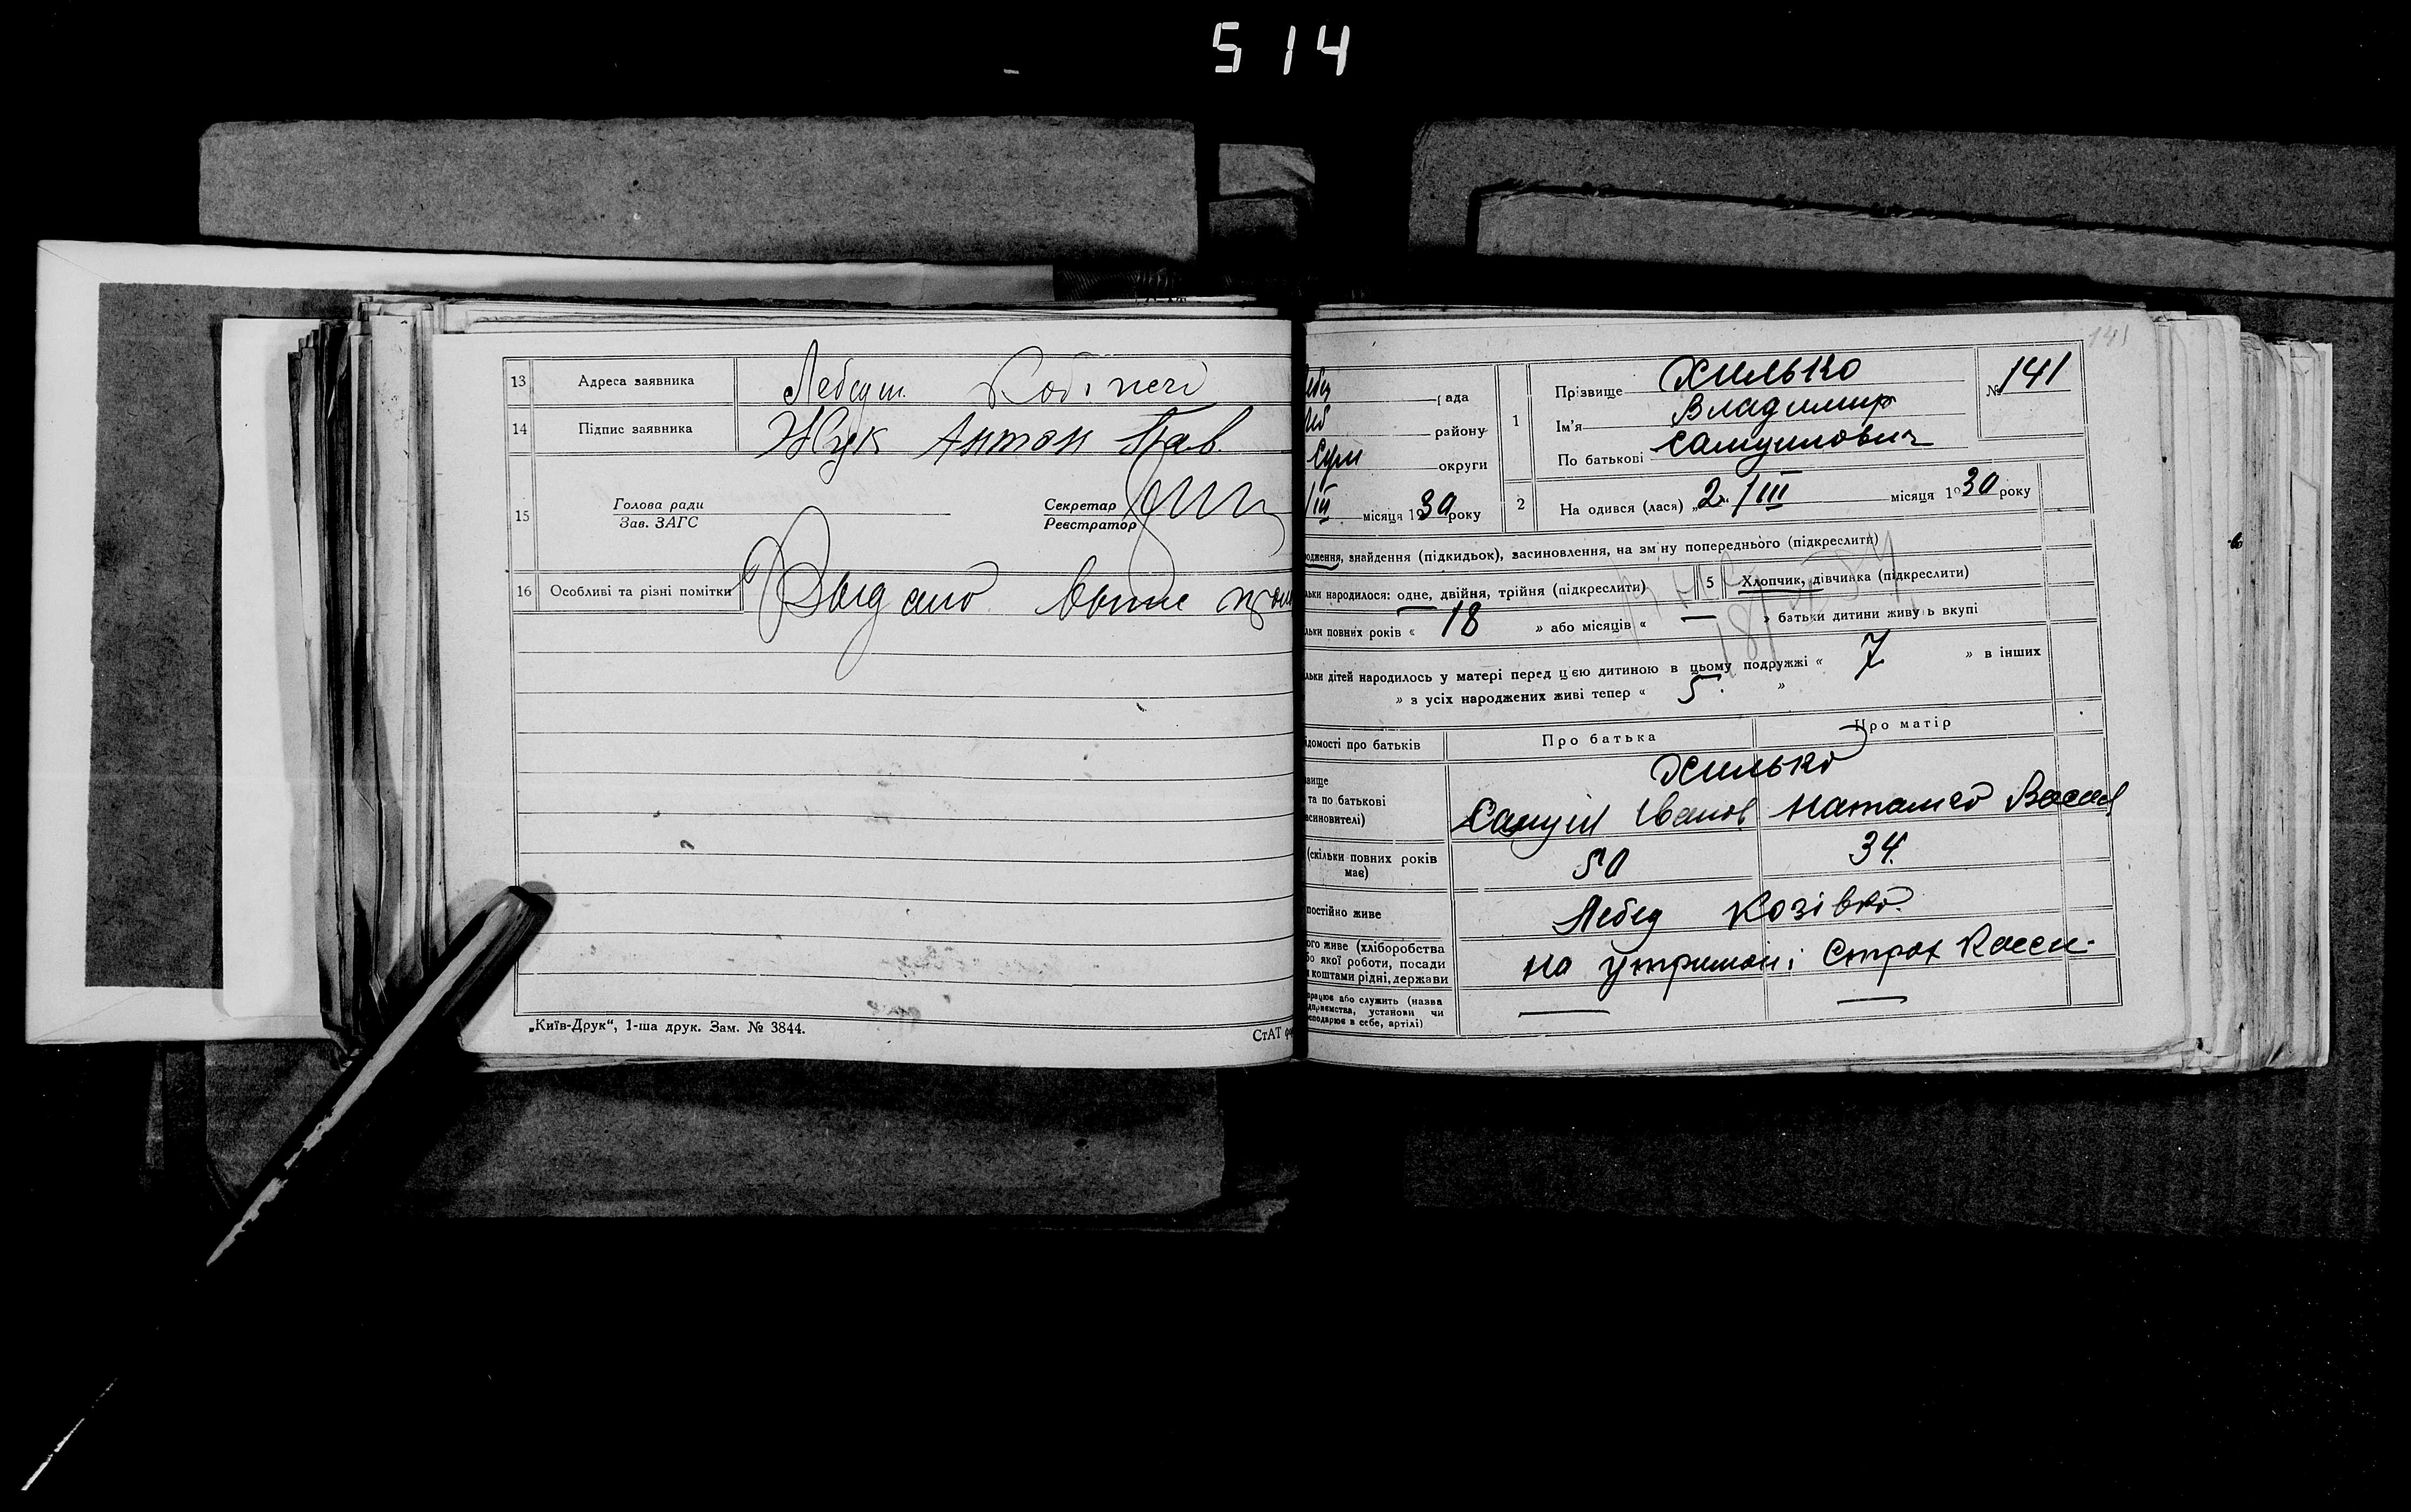 514
13 Адреса заявника Лебедин.
14 Підпис заявника Жук Антон Пав.
15 Голова ради
Зав. ЗАГС
Секретар
Реєстратор
16 Особливі та різні помітки
„Київ-Друк“, 1-ша друк. Зам. № 3844.
СтАТ
141
рада
району
Сум округи
/III місяця 1930 року
1 Прізвище Хилько
Ім'я Владимир
По батькові Самуилович
№ 141
2 На одився (лася) „2“ /III місяця 1930 року
одження, знайдення (підкидьок), засиновлення, на зм ну попереднього (підкреслити)
льки народилося: одне, двійня, трійня (підкреслити)
5 Хлопчик, дівчинка (підкреслити)
льки повних років « 18 » або місяців « — » батьки дитини живу ь вкупі
льки дітей народилось у матері перед цією дитиною в цьому подружжі « 7 » в інших
» з усіх народжених живі тепер « 5. »
ідомості про батьків
Про батька
Про матір
Хилько
вище
та по батькові
асиновителі)
Самуил Іванов
(скільки повних років
має)
50
34.
постійно живе
Лебед Козівка.
ого живе (хліборобства
бо якої роботи, посади
коштами рідні, держави
на утриман і Страх Касси.
працює або служить (назва
дприємства, установи чи
сподарює в себе, артілі)
— —